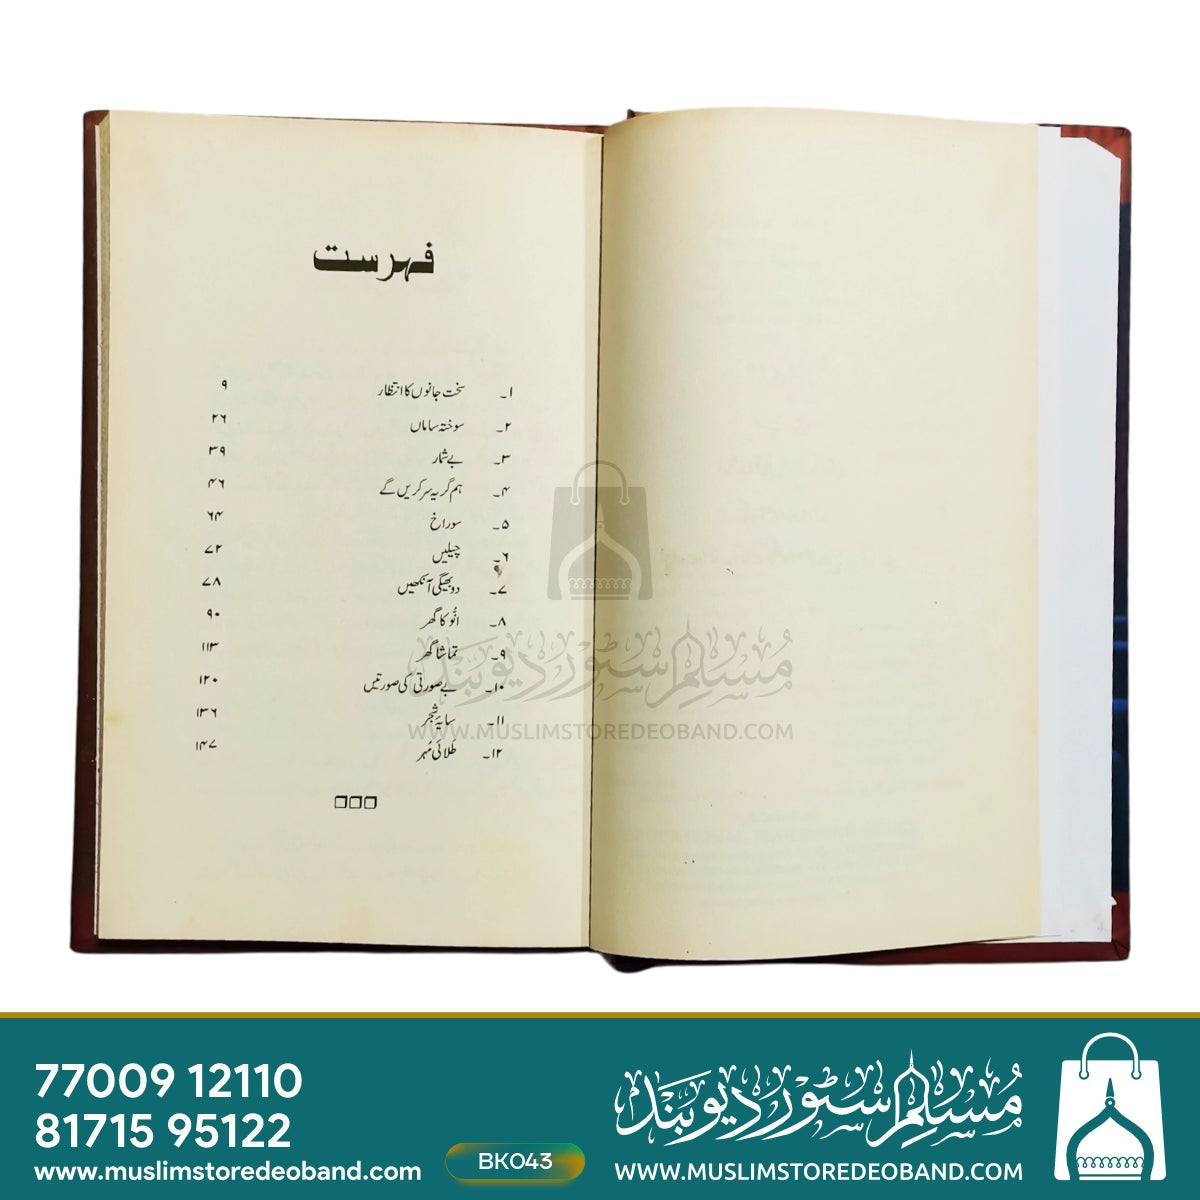 فہرست
۱۔ سخت جانوں کا انتظار ۹
۲۔ سوختہ ساماں ۲۶
۳۔ بے شمار ۳۹
۴۔ ہم گریہ سر کریں گے ۴۶
۵۔ سوراخ ۶۴
۶۔ چیلیں ۷۲
۷۔ دو بھیگی آنکھیں ۷۸
۸۔ انُّو کا گھر ۹۰
۹۔ تماشا گھر ۱۱۳
۱۰۔ بے صورتی کی صورتیں ۱۲۰
۱۱۔ سایۂ شجر ۱۳۶
۱۲۔ طلائی مُہر ۱۴۷
مُسلم سٹور دیوبند
WWW.MUSLIMSTOREDEOBAND.COM
77009 12110
81715 95122
www.muslimstoredeoband.com
BK043
مُسلم سٹور دیوبند
WWW.MUSLIMSTOREDEOBAND.COM